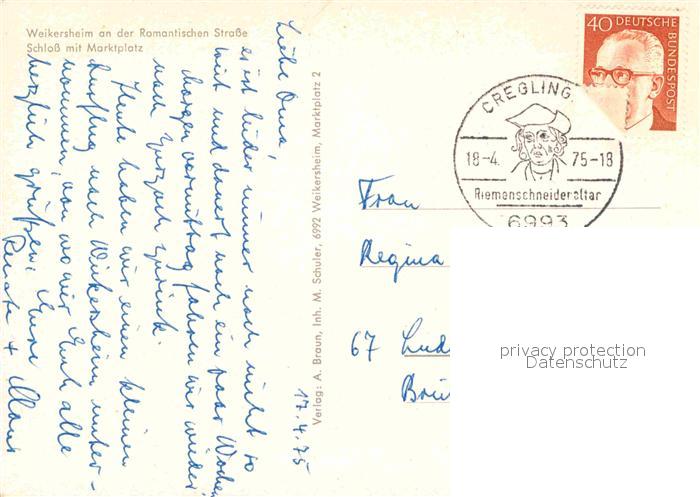 Weikersheim an der Romantischen Straße
Schloß mit Marktplatz
17.4.75
Liebe Oma,
es ist leider immer noch nicht so
weit und dauert noch ein paar Wochen.
Morgen vormittag fahren wir wieder
nach zurück.
Heute haben wir einen kleinen
Ausflug nach Weikersheim unter-
nommen, von wo wir Euch alle
herzlich grüßen. Eure
Renate + Klaus
Verlag: A. Braun, Inh. M. Schuler, 6992 Weikersheim, Marktplatz 2
40 DEUTSCHE BUNDESPOST
CREGLING
18-4. 75-18
Riemenschneideraltar
6993
Frau
Regina
67 Lud
Brü
privacy protection
Datenschutz